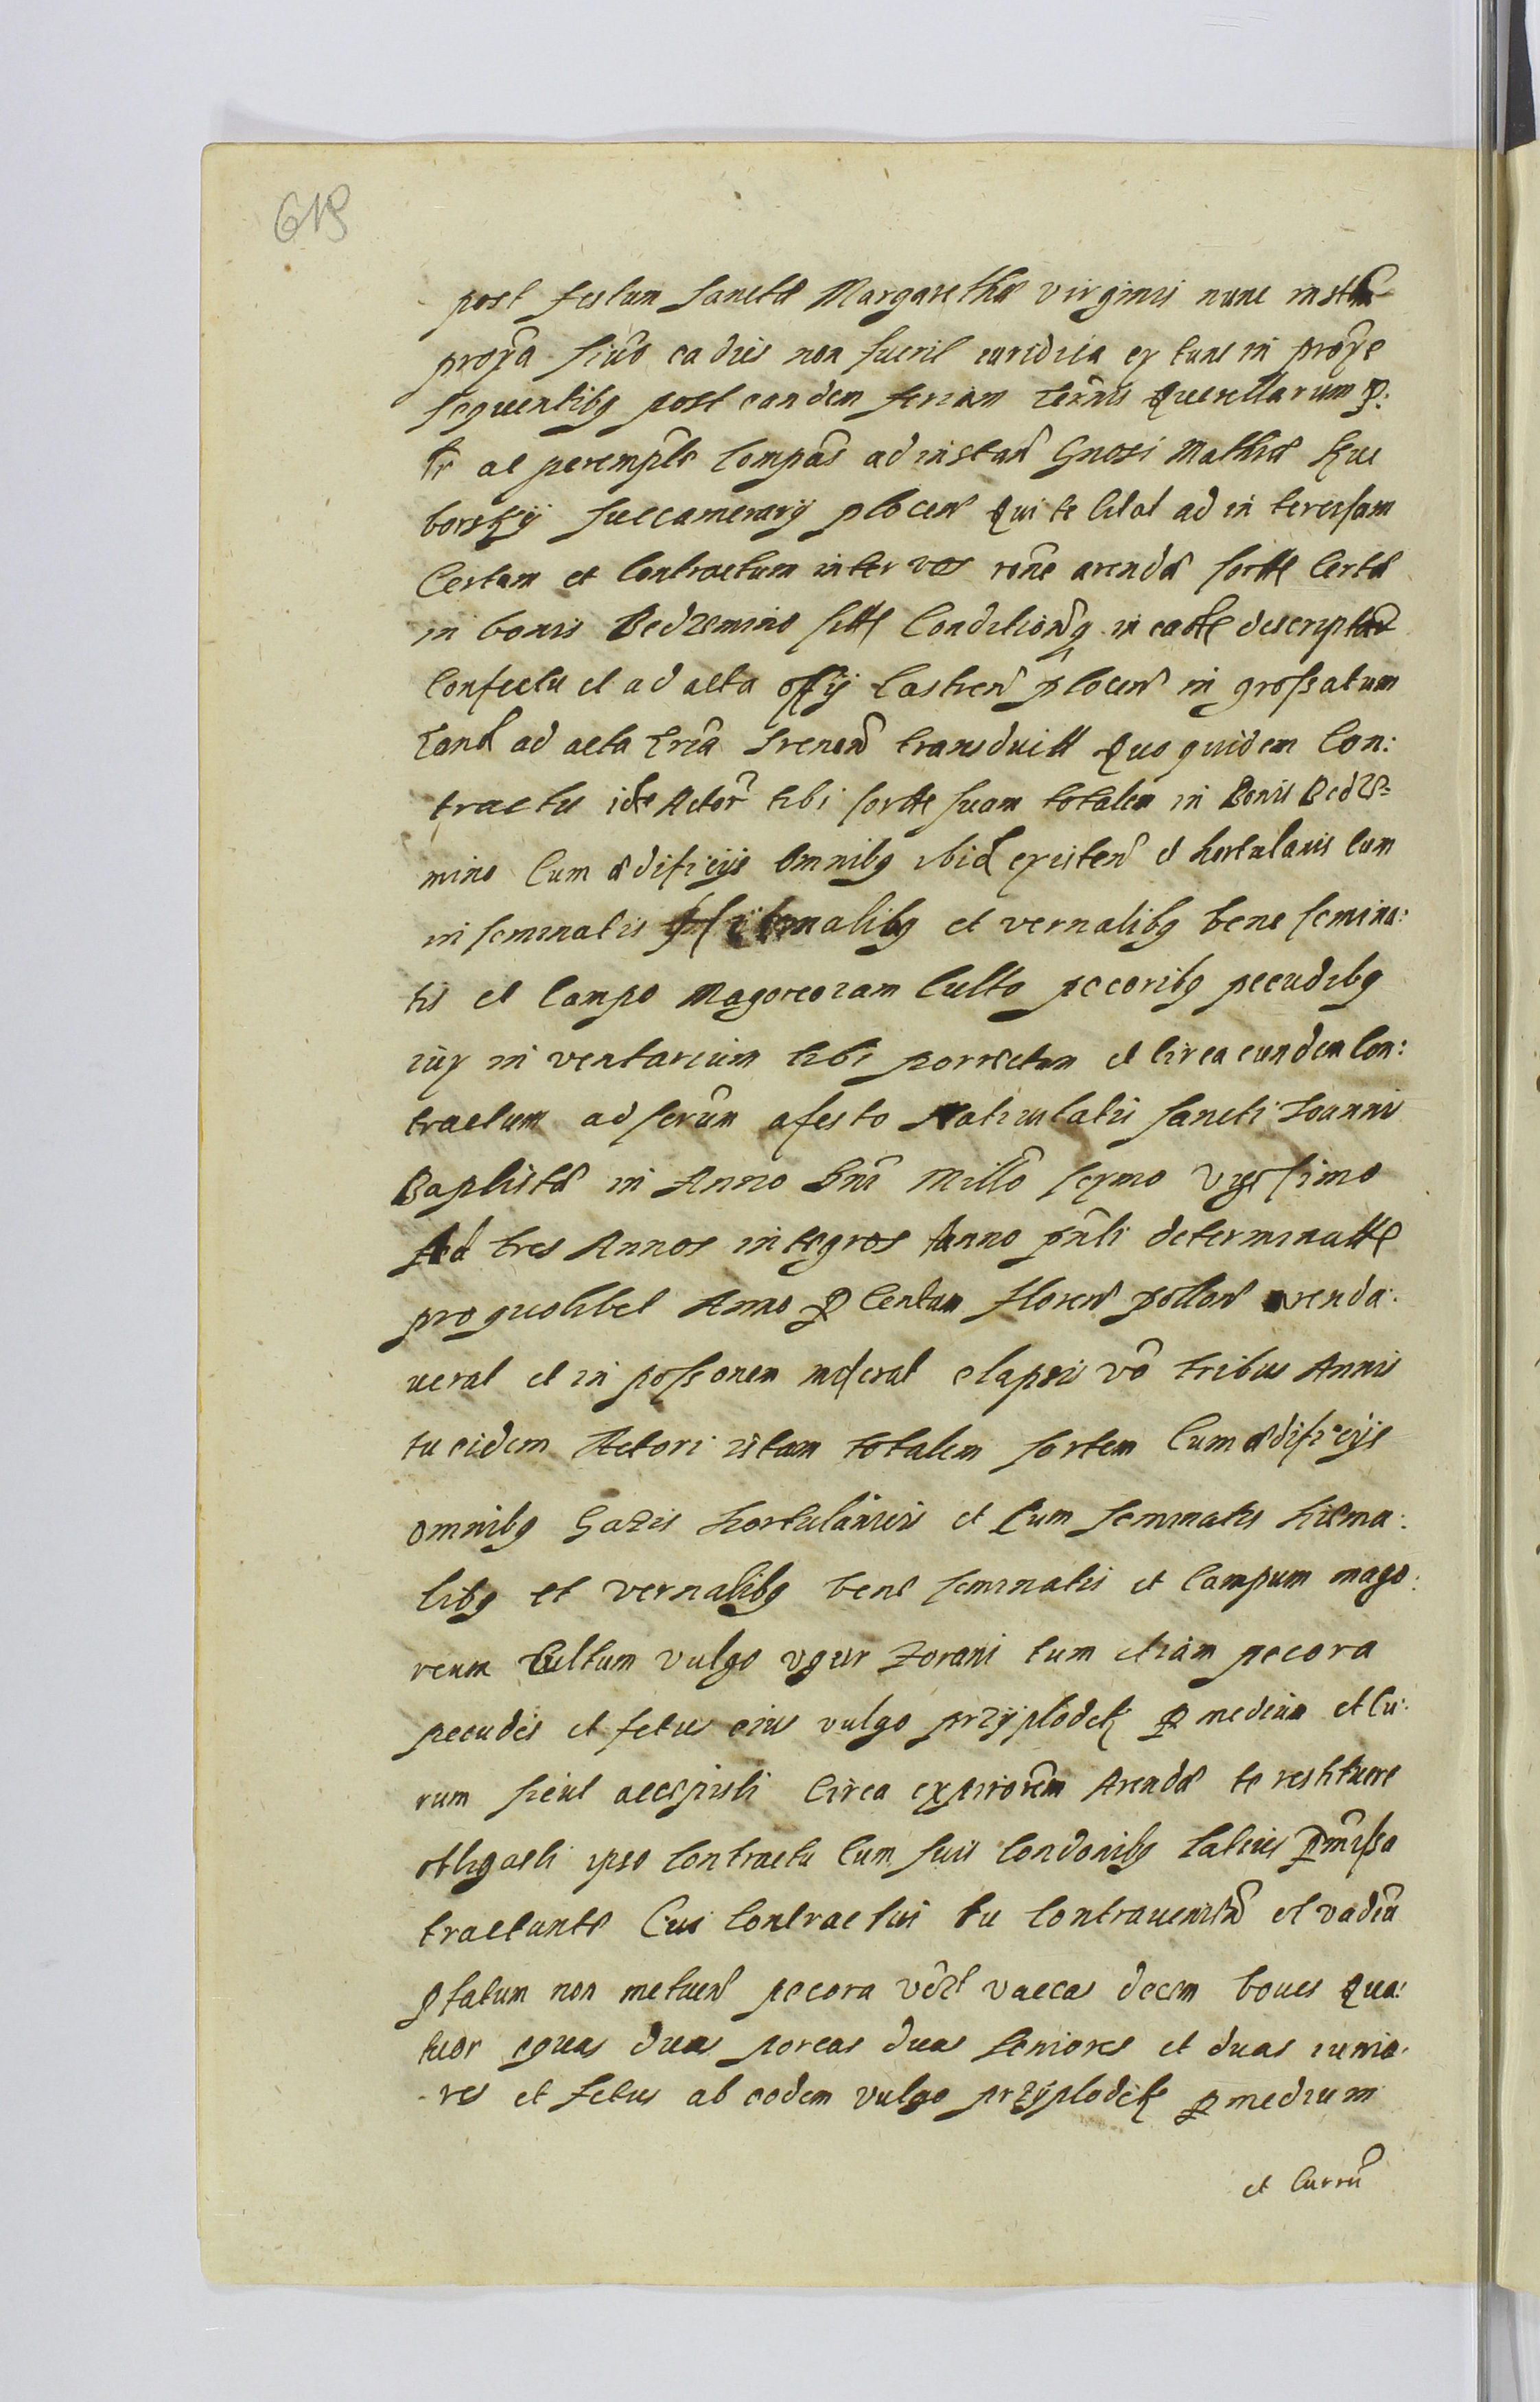 619
post festum sanctæ Margarethæ virginis nunc instañ
proxã si vo ea dies non fuerit iuridica ex tunc in proxe
sequentibq post eandem feriam termis Querellarum p:
tr ac perempte compas ad instan Gnosi Mathiæ Kuc
borskij succamerarij plocen Qui te citat ad in tercisam
Certam et Contractum inter vos rone arendæ sortis Certæ
in bonis Bedzmino Conditionq in eadē descriptam
Confectu et ad acta offij Castren plocen in grossatum
Tand ad acta trīa transduitt Quo quidem Con:
tractu ide Actor tibi sorte suam totalem in Bonis Bedz=
mino Cum ædificijs omnibq ibid existen et hortulanis cum
in seminatis malibq et vernalibq bene semina:
tis et Campo Magoreoram Culto pecoribq pecudibq
iux in ventarium tibi porrectum et circa eundem Con:
tractum ad serum afesto Natiuitatis sancti Joannis
Baptistæ in Anno Dni Millo sexmo vigessimo
ad tres Annos integros Anno pnti determinatte
pro quolibet Anno p Centum floren pollon arenda:
uerat et in possonem miserat elapsis vo tribus Annis
tu eidem Actori istam totalem sortem Cum ædificijs
omnibq Gazis hortulanicis et Cum seminatis hiema:
libq et vernalibq bene seminatis et Campum mago:
reum Cultum vulgo vgur Zorani tum etiam pecora
pecudes et fetus eius vulgo przÿplodek p medium et Cu:
rum sicut accepisti Circa expirorem Arendæ te restituere
obligasti ipso Contractu Cum suis Condonibq Latius pmissa
tractante Cui Contractui tu Contraueniēn et vadiū
pfatum non metuen pecora vdzt vaccas decem boues Qua:
tuor equas duas porcas duas seniores et duas iunio:
res et fetus ab eodem vulgo przÿplodek p medium
et Currū